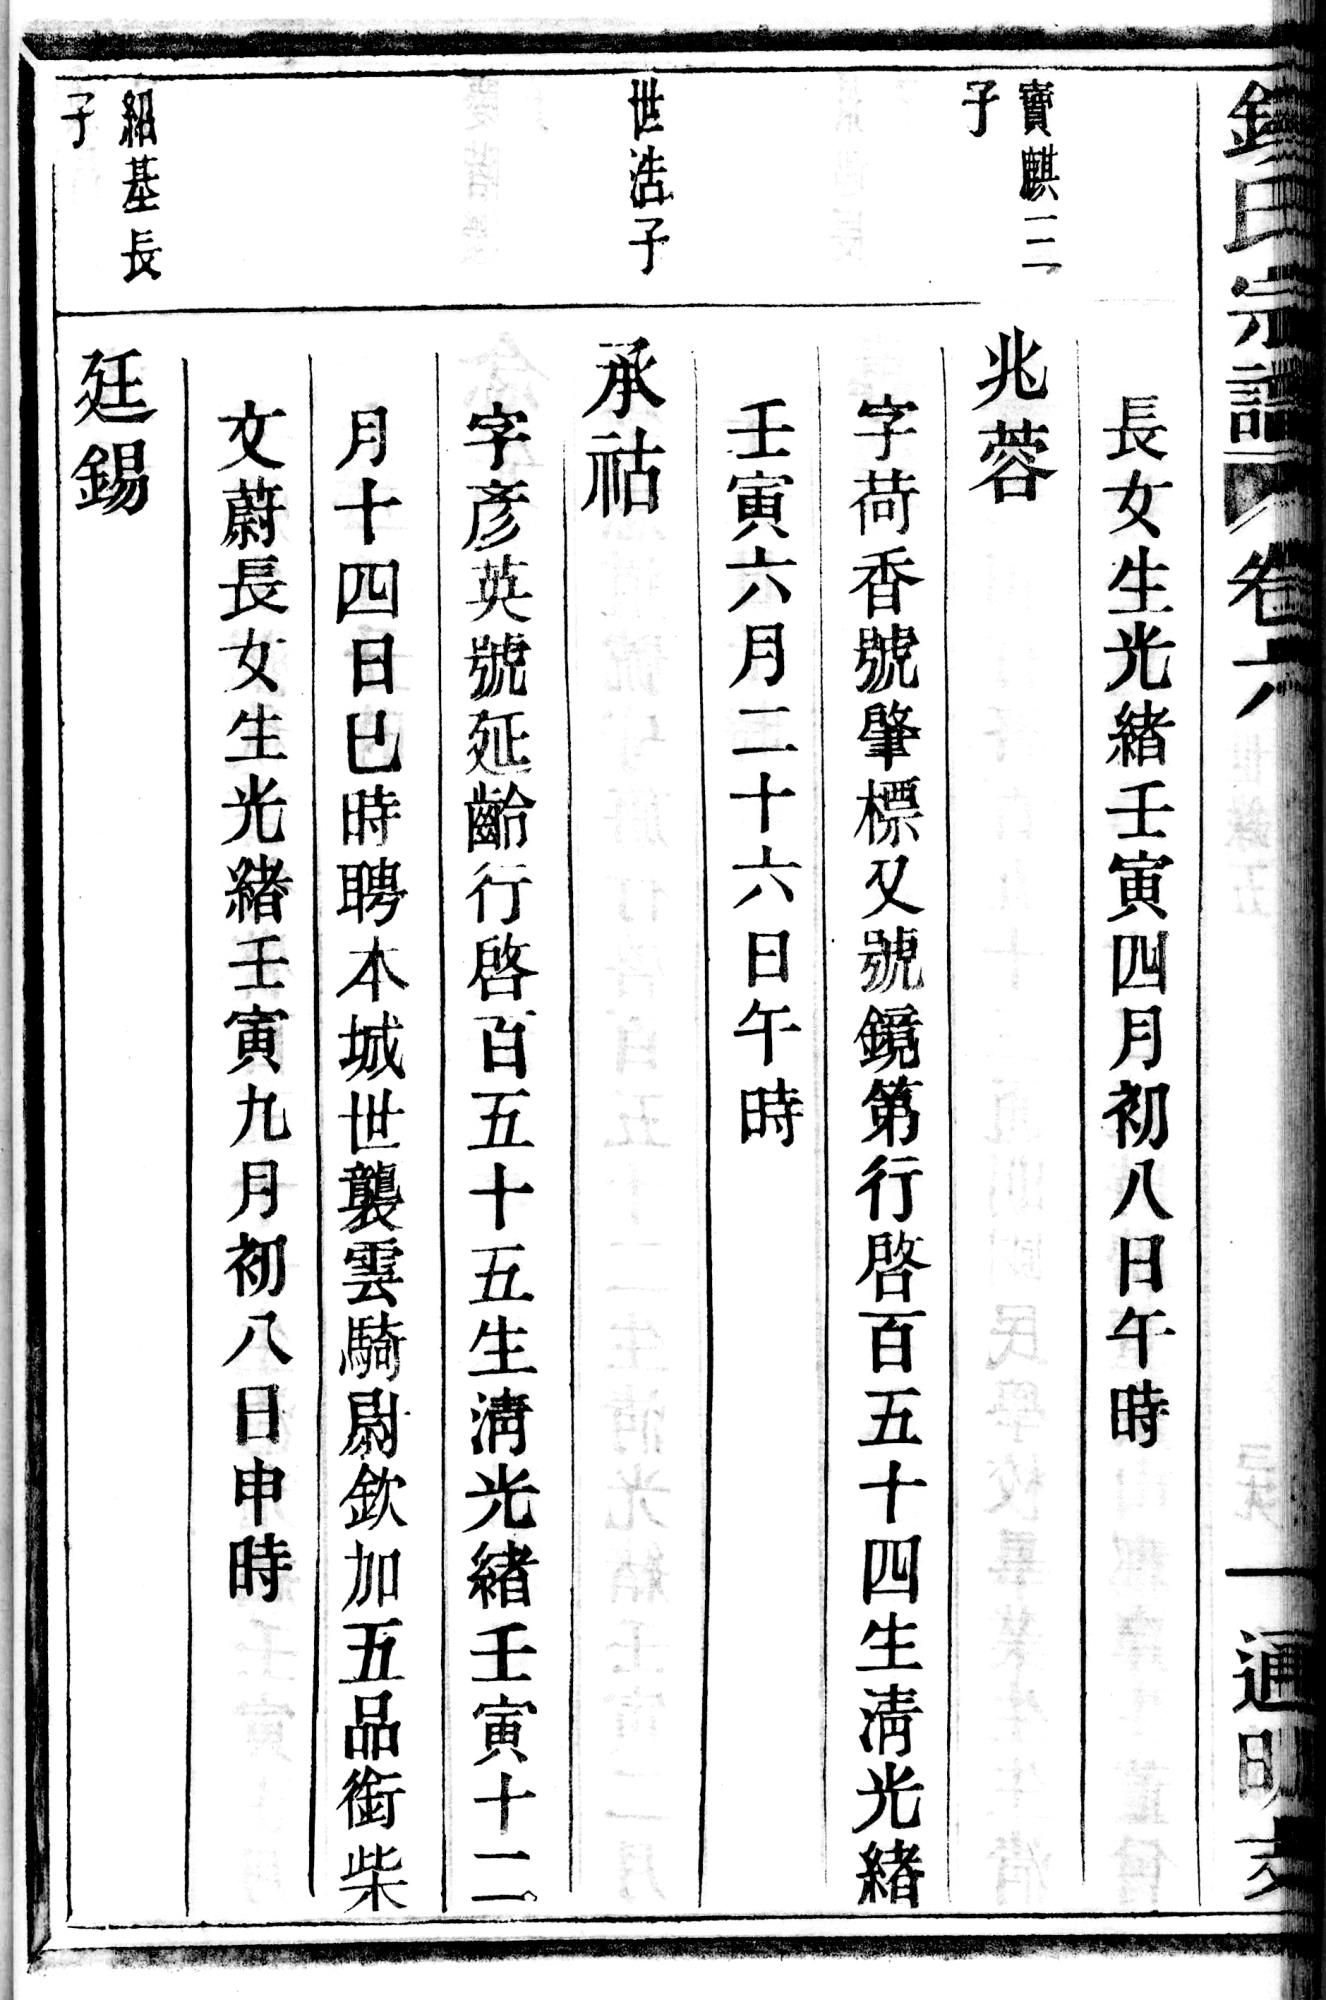 錢氏宗譜 卷六 一 通明支
長女生光緒壬寅四月初八日午時
寶麒三
子
兆蓉
字荷香號肇標又號鏡第行啓百五十四生淸光緒
壬寅六月二十六日午時
世浩子
承祜
字彥英號延齡行啓百五十五生淸光緒壬寅十二
月十四日巳時聘本城世襲雲騎尉欽加五品銜柴
文蔚長女生光緒壬寅九月初八日申時
紹基長
子
廷錫